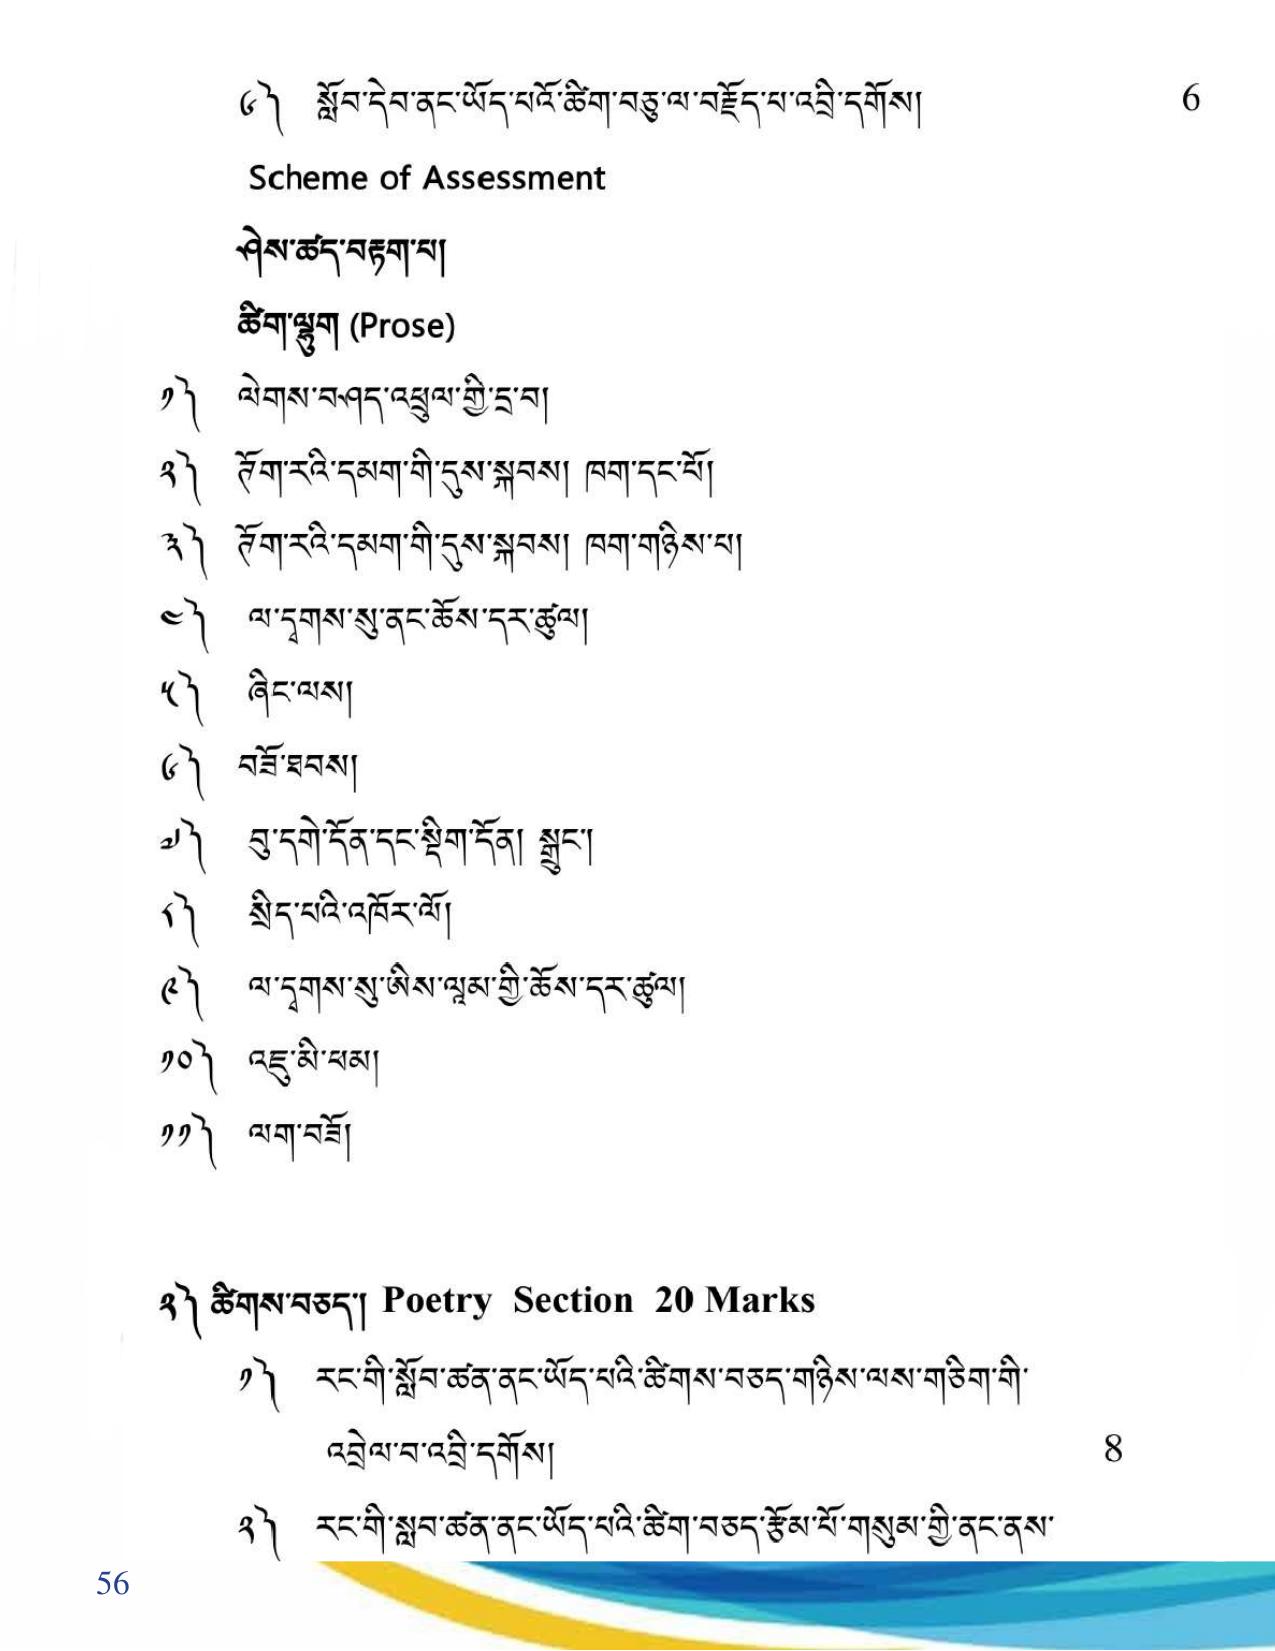 ༦༽ སློབ་དེབ་ནང་ཡོད་པའོ་ཚིག་བཅུ་ལ་བརྗོད་པ་འབྲི་དགོས། 6
Scheme of Assessment
ཤེས་ཚད་བརྟག་པ།
ཚིག་ལྷུག (Prose)
༡༽ ལེགས་བཤད་འཕྲུལ་གྱི་དྲ་བ།
༢༽ ཌོག་རའི་དམག་གི་དུས་སྐབས། ཁག་དང་པོ།
༣༽ ཌོག་རའི་དམག་གི་དུས་སྐབས། ཁག་གཉིས་པ།
༤༽ ལ་དྭགས་སུ་ནང་ཆོས་དར་ཚུལ།
༥༽ ཞིང་ལས།
༦༽ བཟོ་ཐབས།
༧༽ བུ་དགེ་དོན་དང་སྡིག་དོན། སྒྲུང་།
༨༽ སྲིད་པའི་འཁོར་ལོ།
༩༽ ལ་དྭགས་སུ་ཨིས་ལཱམ་གྱི་ཆོས་དར་ཚུལ།
༡༠༽ འཇུ་མི་ཕམ།
༡༡༽ ལག་བཟོ།
༢༽ ཚིགས་བཅད། Poetry Section 20 Marks
༡༽ རང་གི་སློབ་ཚན་ནང་ཡོད་པའི་ཚིགས་བཅད་གཉིས་ལས་གཅིག་གི་
འབྲེལ་བ་འབྲི་དགོས། 8
༢༽ རང་གི་སླབ་ཚན་ནང་ཡོད་པའི་ཚིག་བཅད་རྩོམ་པོ་གསུམ་གྱི་ནང་ནས་
56